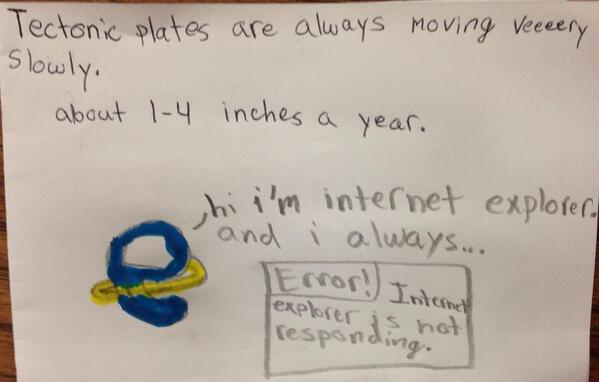 Tectonic plates are always moving veeeery
slowly.
about 1-4 inches a year.
hi i'm internet explorer.
and i always...
Error! Internet
explorer is not
responding.